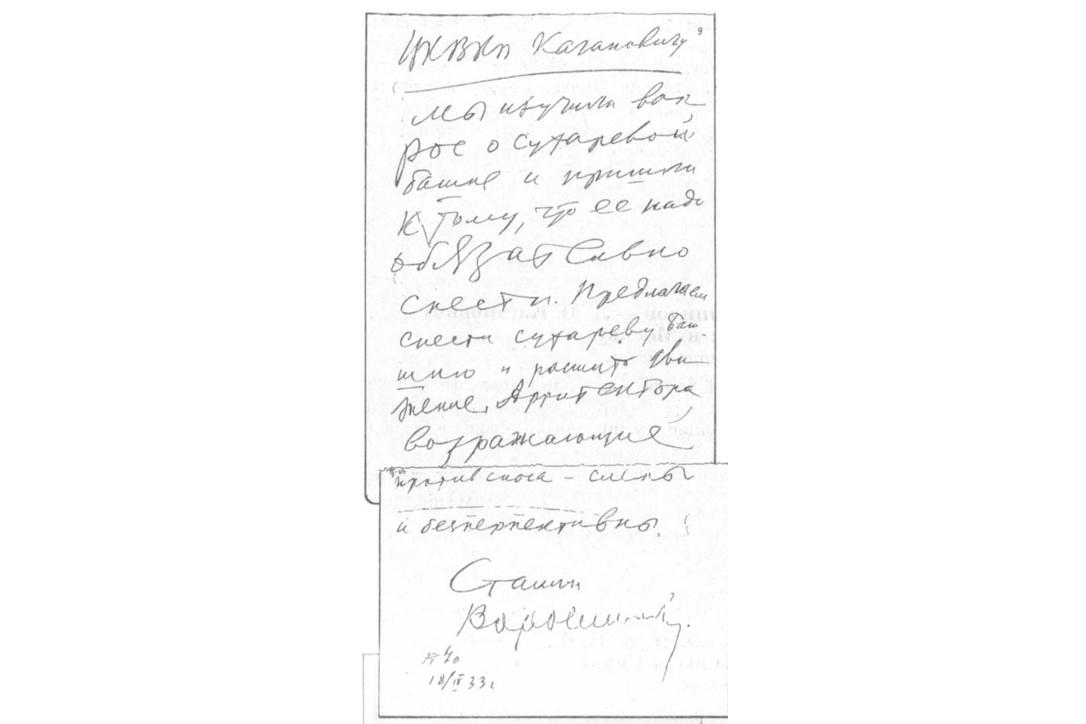 ЦКВКП Кагановичу
Мы изучили воп
рос о сухаревой
башне и пришли
к тому, что ее надо
обязательно
снести. Предлагаем
снести сухареву баш
ню и расшить дви
жение. Архитектора
возражающие
против сноса – слепы
и безперпективны.
Сталин
Ворошилов.
№ 40
18/IX 33 г